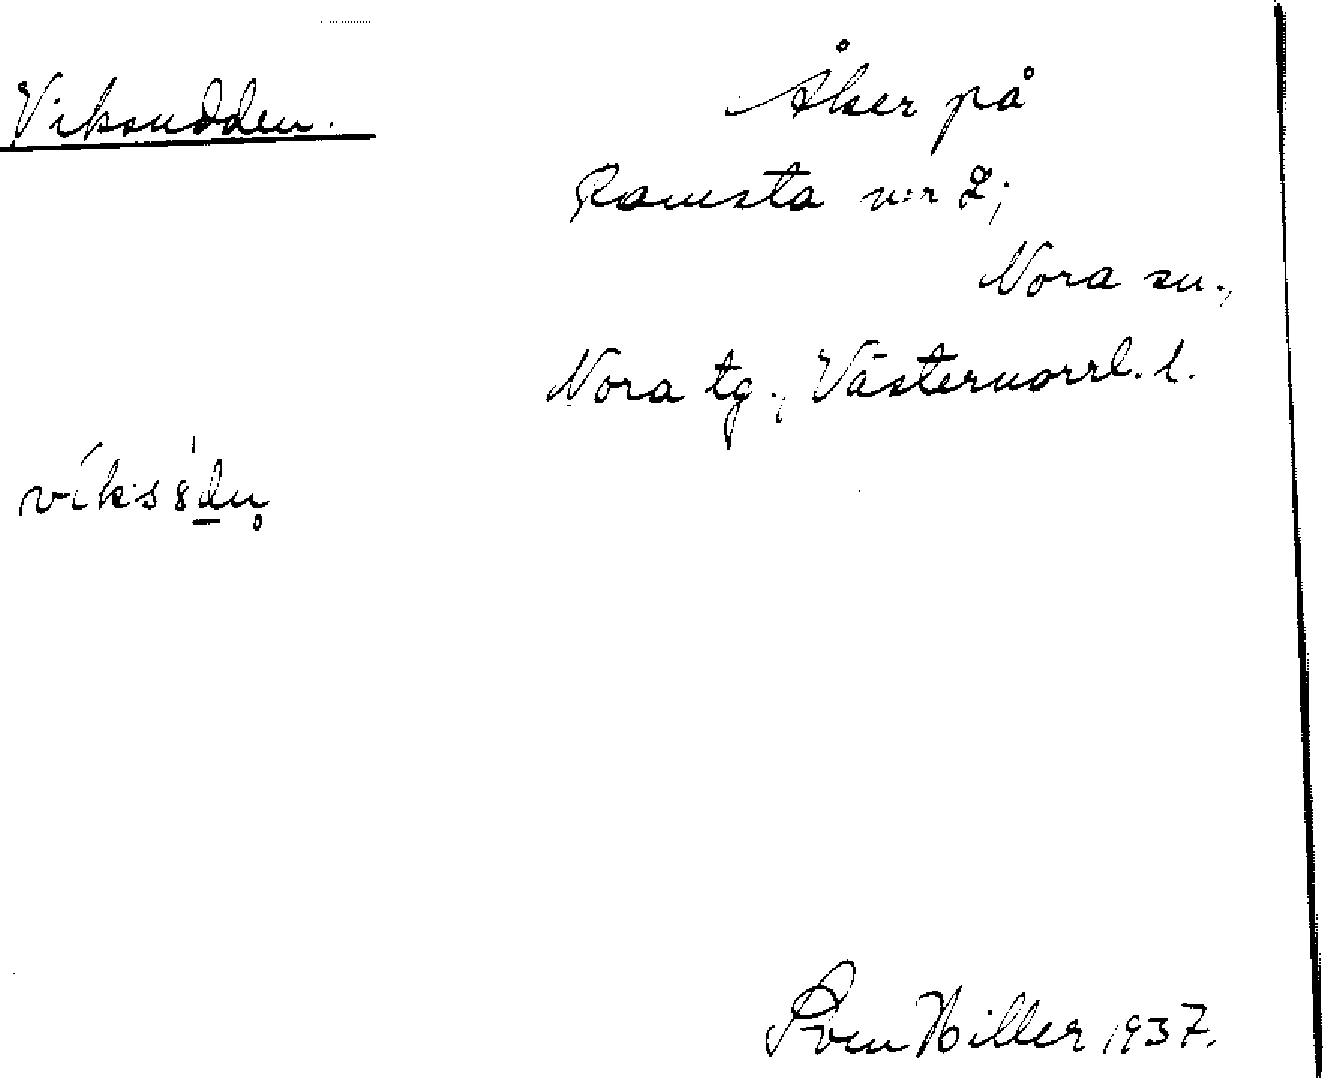 Viksudden.
Åker på
Ramsta n:r 2;
Nora sn.,
Nora tg., Västernorrl. l.
Sven Hiller 1937.